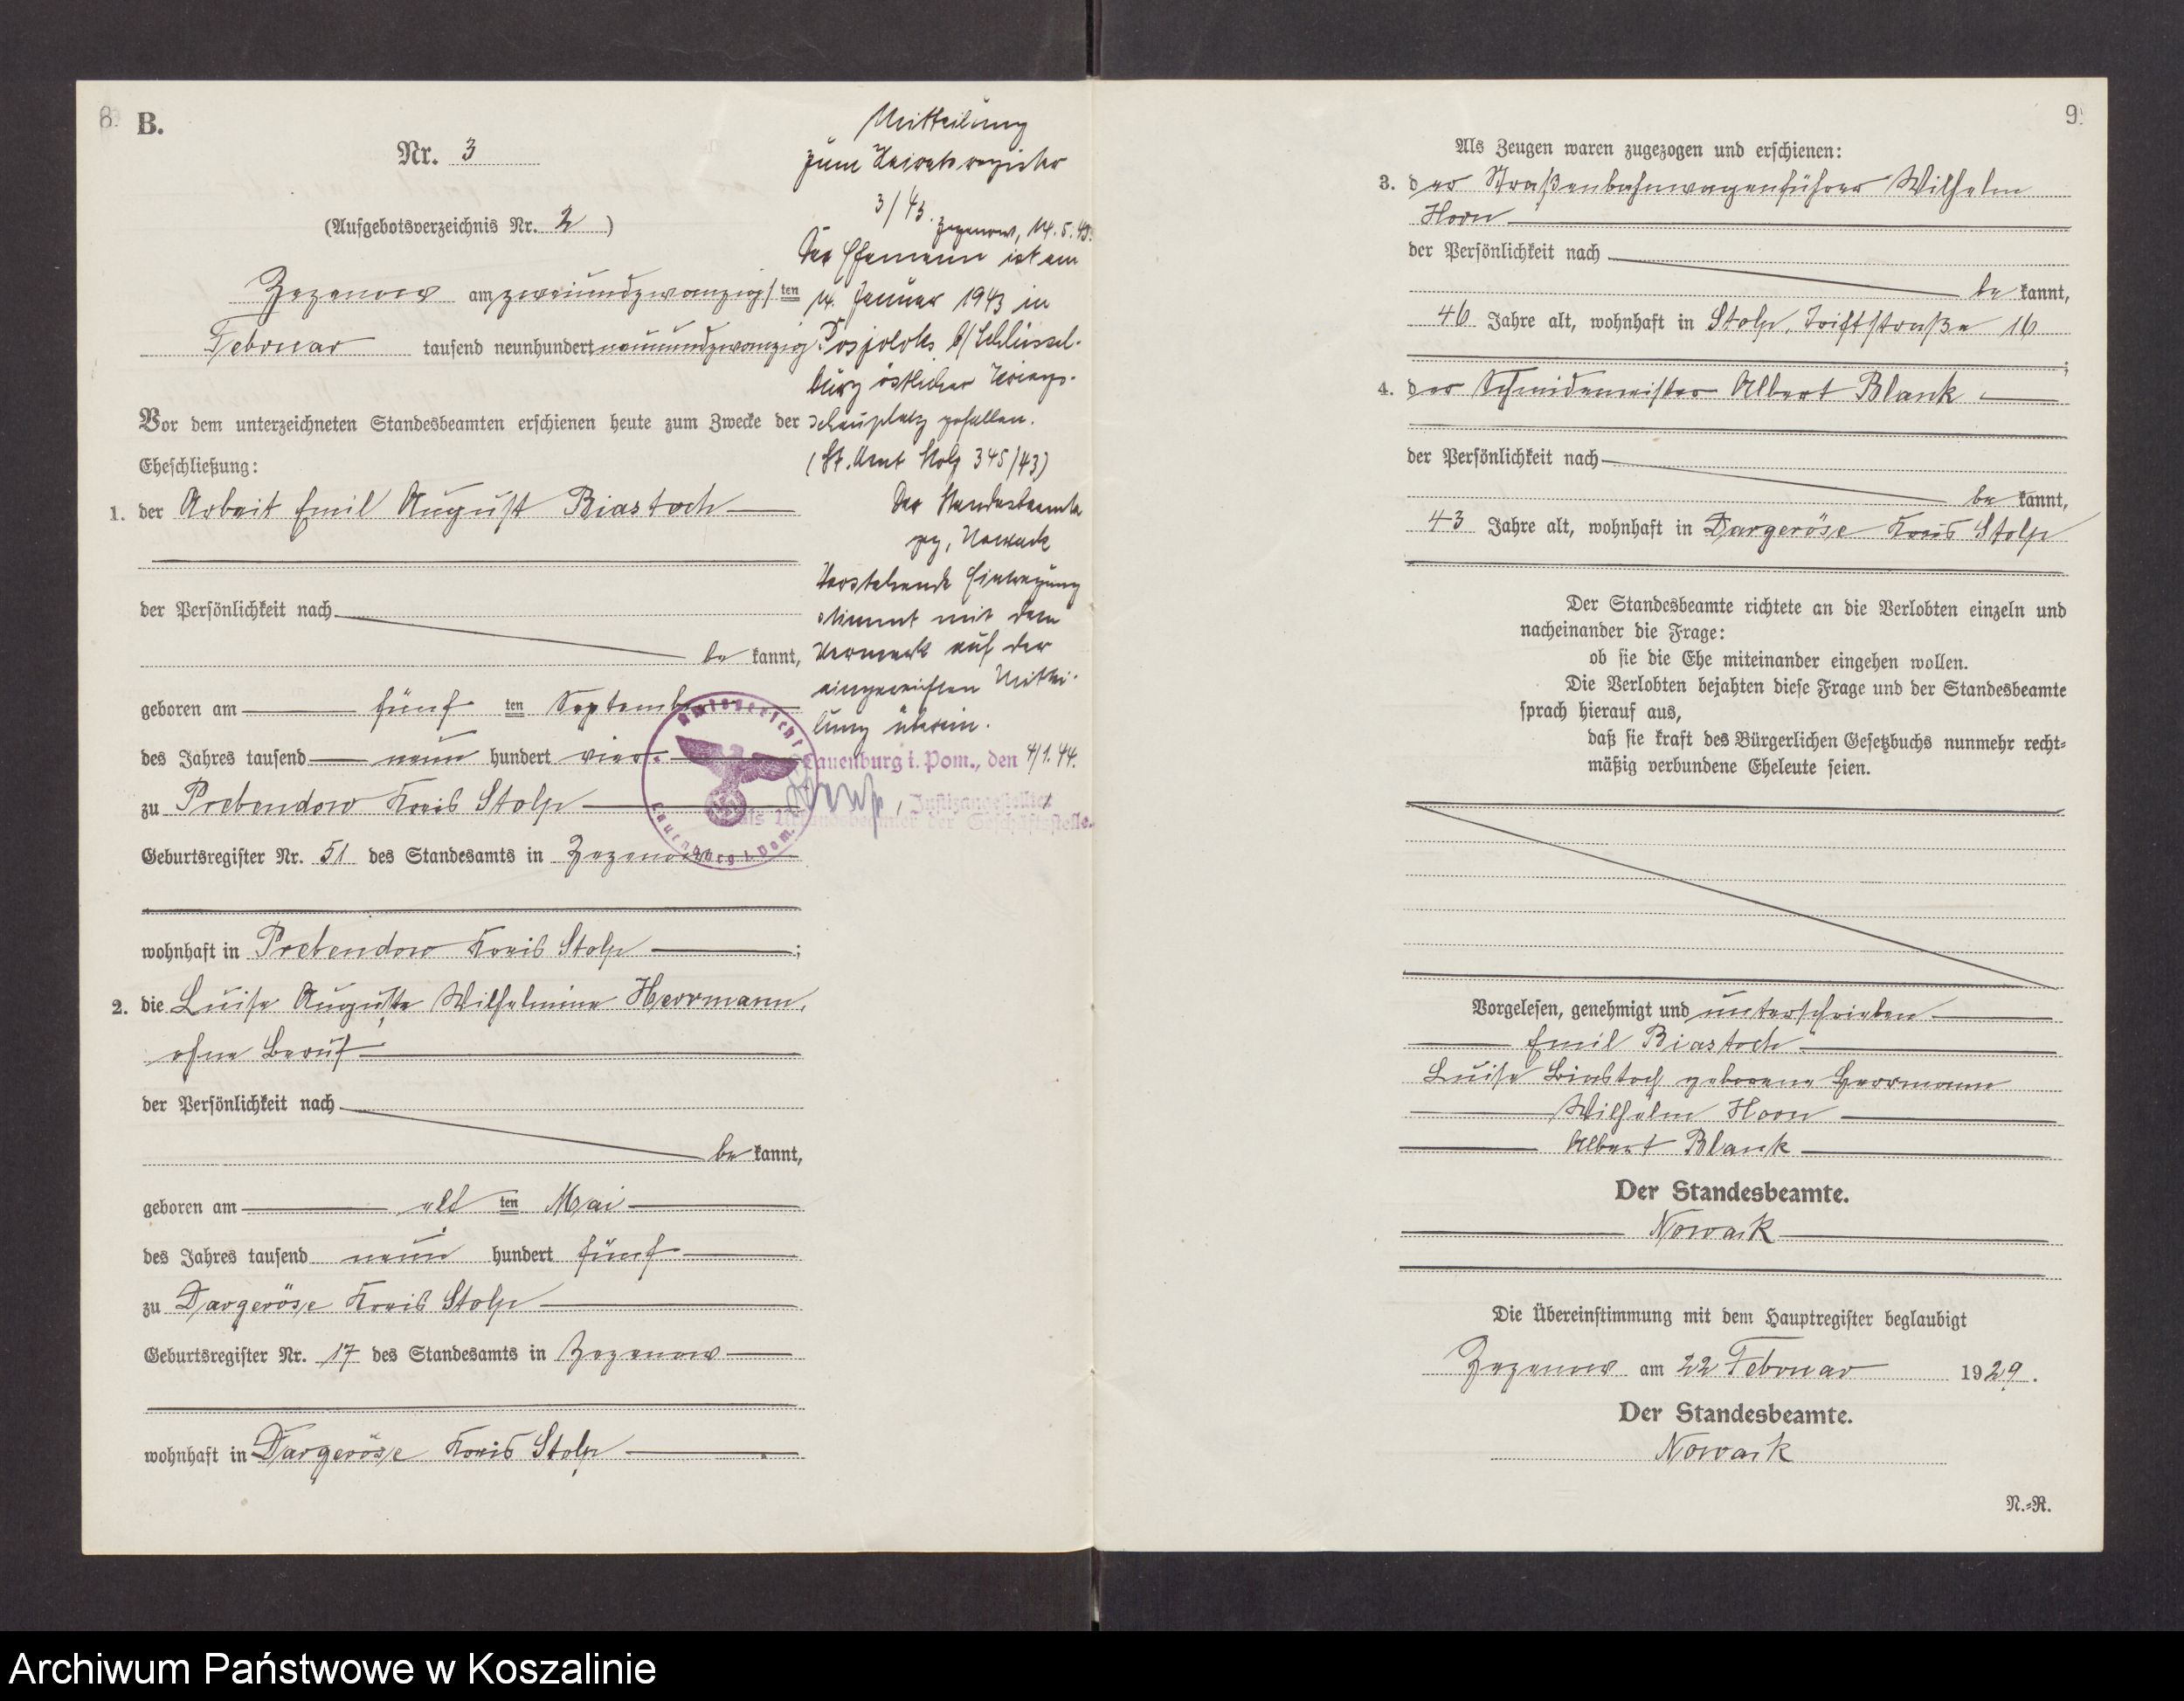 8.
B.
Nr. 3
(Aufgebotsverzeichnis Nr. 2)
Zezenow am zweiundzwanzigsten
Februar tausend neunhundert neunundzwanzig.
Vor dem unterzeichneten Standesbeamten erschienen heute zum Zwecke der
Eheschließung:
1. der Arbeit Emil August Biastoch
der Persönlichkeit nach
be kannt,
geboren am fünf ten September
des Jahres tausend neun hundert vier
zu Prebendow Kreis Stolp
Geburtsregister Nr. 51 des Standesamts in Zezenow
wohnhaft in Prebendow Kreis Stolp;
2. die Luise Auguste Wilhelmine Herrmann,
ohne Beruf
der Persönlichkeit nach
be kannt,
geboren am elf ten Mai
des Jahres tausend neun hundert fünf
zu Dargeröse Kreis Stolp
Geburtsregister Nr. 17 des Standesamts in Zezenow
wohnhaft in Dargeröse Kreis Stolp.
Mitteilung
zum Heiratsregister
3/43.
Zezenow, 14.5.43.
Der Ehemann ist am
14. Januar 1943 in
Posjolok b/Schlüssel-
burg östlicher Kriegs-
schauplatz gefallen.
(St. Amt Stolp 345/43)
Der Standesbeamte
gez. Nowack
Vorstehende Eintragung
stimmt mit dem
Vermerk auf der
eingereichten Mittei-
lung überein.
Lauenburg i. Pom., den 4/1.44.
Justizangestellter
als Urkundsbeamter der Geschäftsstelle.
Amtsgericht
Lauenburg i. Pom.
9.
Als Zeugen waren zugezogen und erschienen:
3. der Straßenbahnwagenführer Wilhelm
Horn
der Persönlichkeit nach
be kannt,
46 Jahre alt, wohnhaft in Stolp, Triftstraße 16
;
4. der Schmiedemeister Albert Blank
der Persönlichkeit nach
be kannt,
43 Jahre alt, wohnhaft in Dargeröse Kreis Stolp
Der Standesbeamte richtete an die Verlobten einzeln und
nacheinander die Frage:
ob sie die Ehe miteinander eingehen wollen.
Die Verlobten bejahten diese Frage und der Standesbeamte
sprach hierauf aus,
daß sie kraft des Bürgerlichen Gesetzbuchs nunmehr recht-
mäßig verbundene Eheleute seien.
Vorgelesen, genehmigt und unterschrieben
Emil Biastoch
Luise Biastoch geborene Herrmann
Wilhelm Horn
Albert Blank
Der Standesbeamte.
Nowack
Die Übereinstimmung mit dem Hauptregister beglaubigt
Zezenow am 22 Februar 1929.
Der Standesbeamte.
Nowack
N.-R.
Archiwum Państwowe w Koszalinie